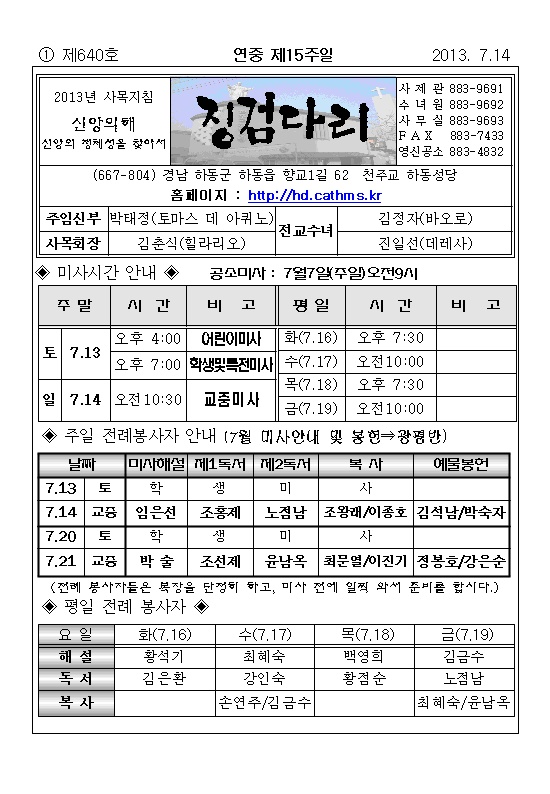 ① 제640호 연중 제15주일 2013. 7.14
2013년 사목지침
신앙의해
신앙의 정체성을 찾아서
징검다리
사 제 관 883-9691
수 녀 원 883-9692
사 무 실 883-9693
F A X 883-7433
영신공소 883-4832
(667-804) 경남 하동군 하동읍 향교1길 62 천주교 하동성당
홈페이지 : http://hd.cathms.kr
주임신부 박태정(토마스 데 아퀴노) 전교수녀 김정자(바오로)
사목회장 김춘식(힐라리오) 진일선(데레사)
◈ 미사시간 안내 ◈ 공소미사 : 7월7일(주일)오전9시
주 말 시 간 비 고 평 일 시 간 비 고
토 7.13 오후 4:00 어린이미사 화(7.16) 오후 7:30
오후 7:00 학생및특전미사 수(7.17) 오전10:00
일 7.14 오전10:30 교중미사 목(7.18) 오후 7:30
금(7.19) 오전10:00
◈ 주일 전례봉사자 안내 (7월 미사안내 및 봉헌⇒광평반)
날짜 미사해설 제1독서 제2독서 복 사 예물봉헌
7.13 토 학 생 미 사
7.14 교중 임은선 조홍제 노점남 조왕래/이종호 김석남/박숙자
7.20 토 학 생 미 사
7.21 교중 박 술 조선제 윤남옥 최문열/이진기 정봉호/강은순
(전례 봉사자들은 복장을 단정히 하고, 미사 전에 일찍 와서 준비를 합시다.)
◈ 평일 전례 봉사자 ◈
요 일 화(7.16) 수(7.17) 목(7.18) 금(7.19)
해 설 황석기 최혜숙 백영희 김금수
독 서 김은환 강인숙 황점순 노점남
복 사 손연주/김금수 최혜숙/윤남옥